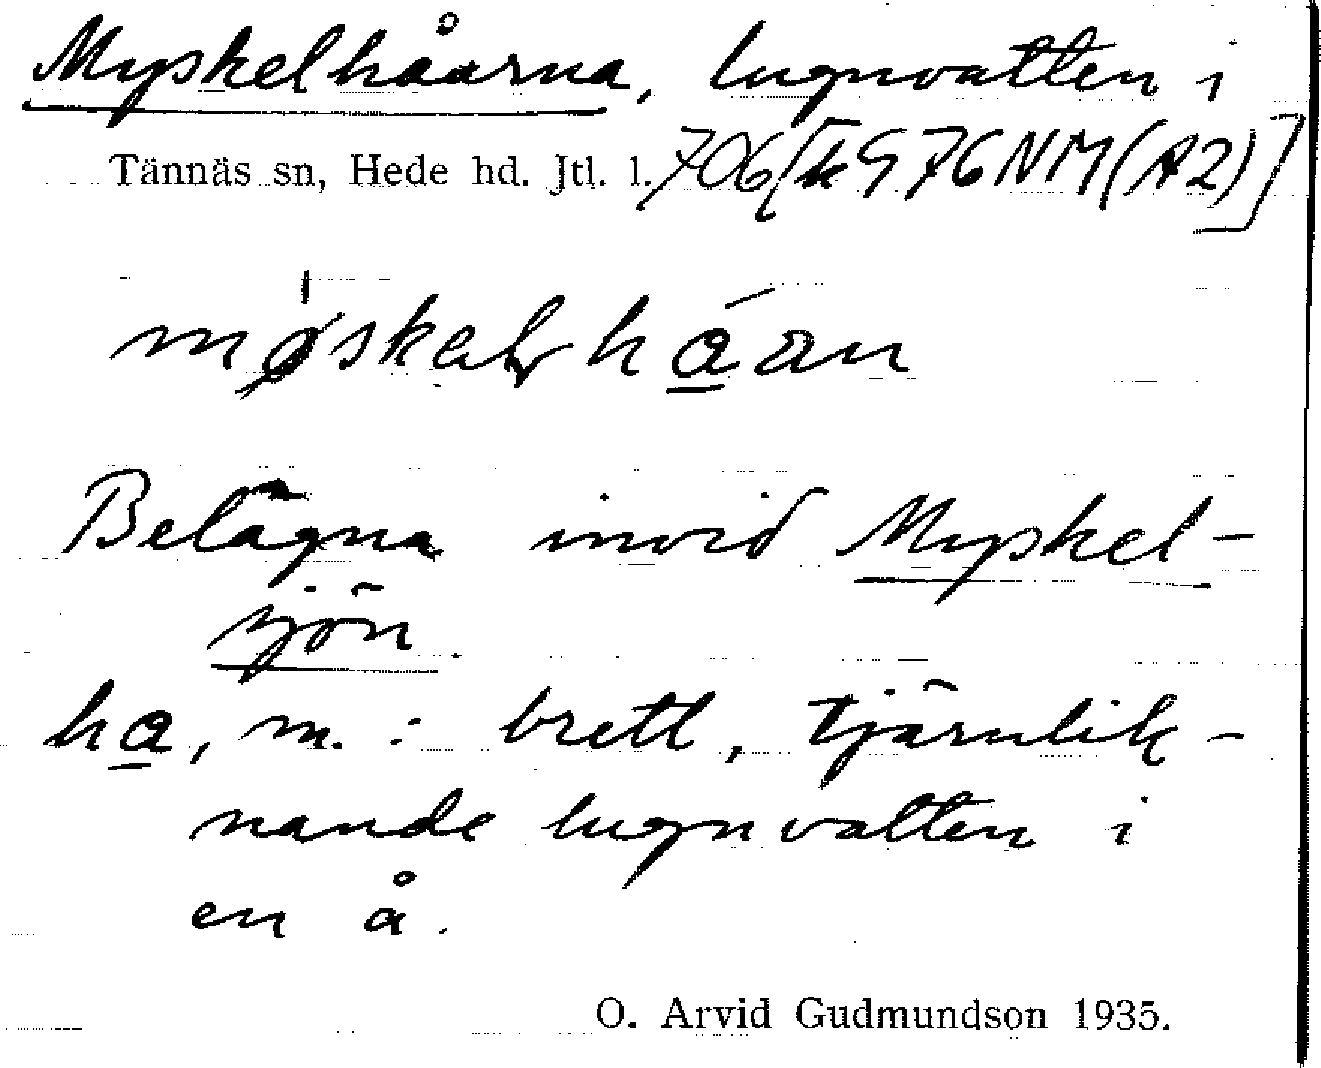 Myskelhåarna, lugnvatten i
Tännäs sn, Hede hd. Jtl. l. 706 [k976NM(A2)]
Belägna invid Myskel-
sjön.
ha, m. : brett, tjärnlik-
nande lugnvatten i
en å.
O. Arvid Gudmundson 1935.